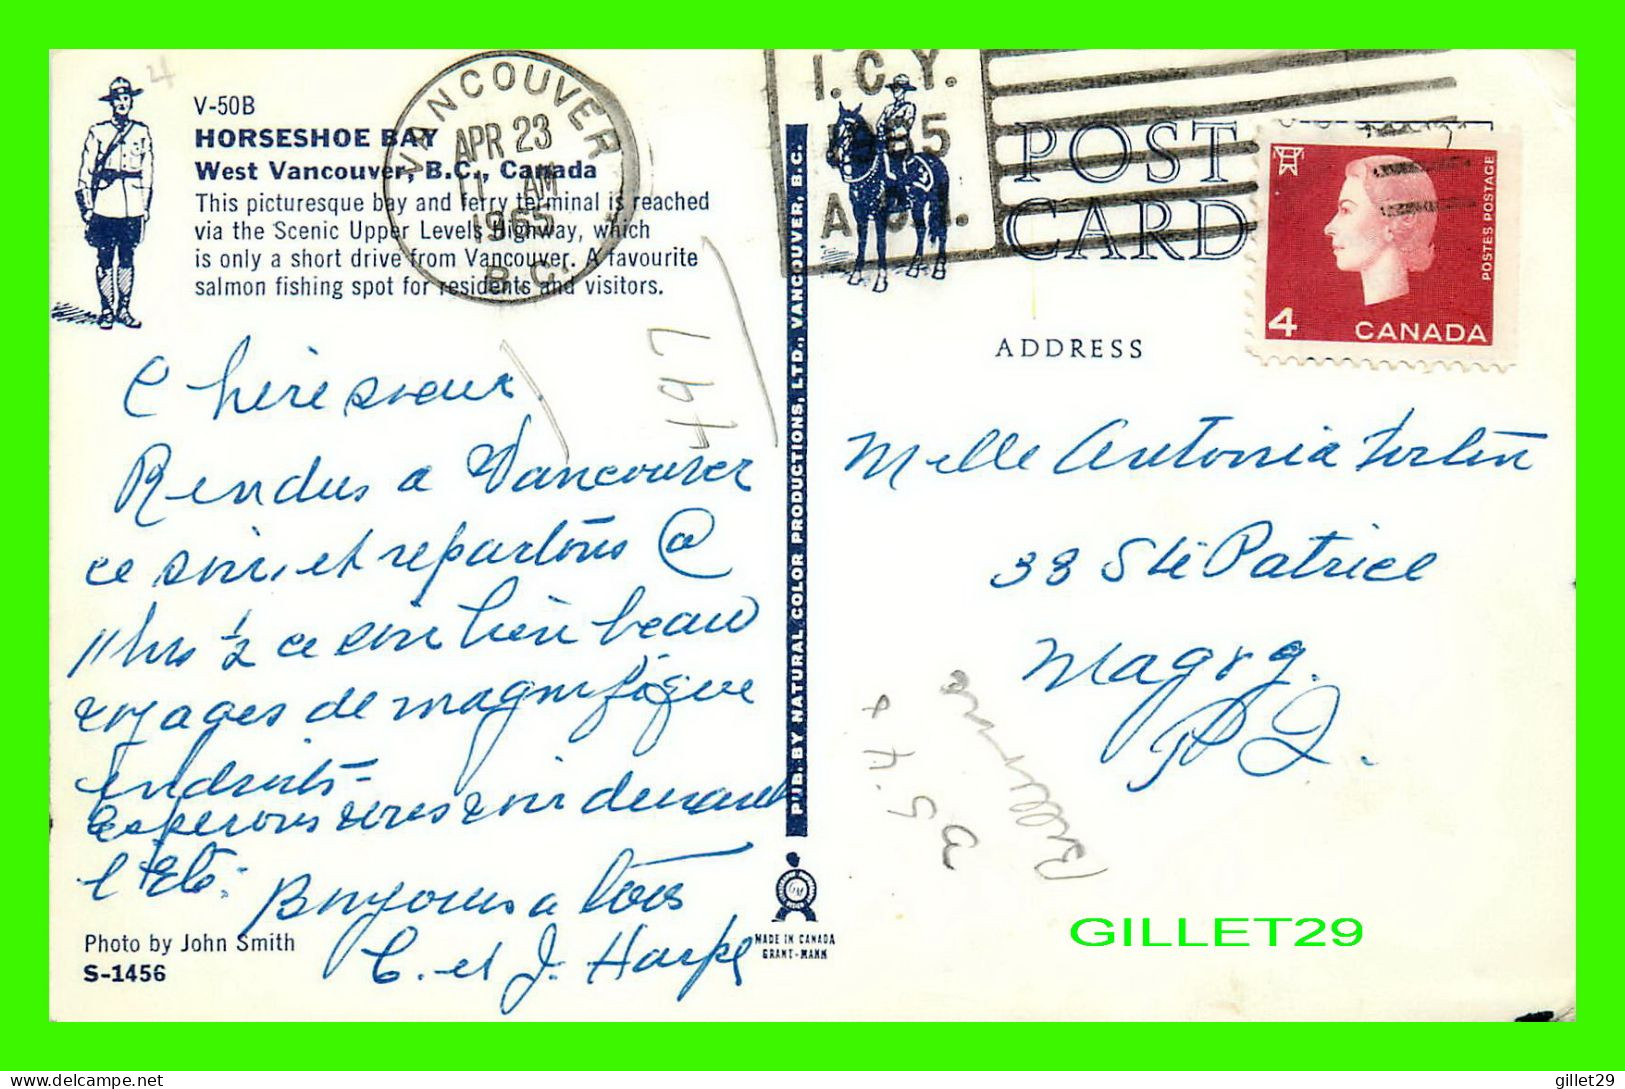 4
V-50B
HORSESHOE BAY
West Vancouver, B.C., Canada
This picturesque bay and ferry terminal is reached
via the Scenic Upper Levels Highway, which
is only a short drive from Vancouver. A favourite
salmon fishing spot for residents and visitors.
VANCOUVER
APR 23
AM
1965
B.C.
I.C.Y.
1965
A.C.I.
POST
CARD
POSTES POSTAGE
4 CANADA
ADDRESS
497
Chère soeur
Rendus a Vancouver
ce soir, et repartons @
11 hrs ½ ce soir bien beau
voyages de magnifique
endroits-
Esperons vous voir durant
l'Eté.
Bonjours a tous
C. et J. Harpe
Melle Antonia Fortin
38 Ste Patrice
Magog.
P Q.
PUB. BY NATURAL COLOR PRODUCTIONS, LTD., VANCOUVER, B.C.
MADE IN CANADA
GRANT-MANN
Photo by John Smith
S-1456
GILLET29
gillet29
delcampe.net